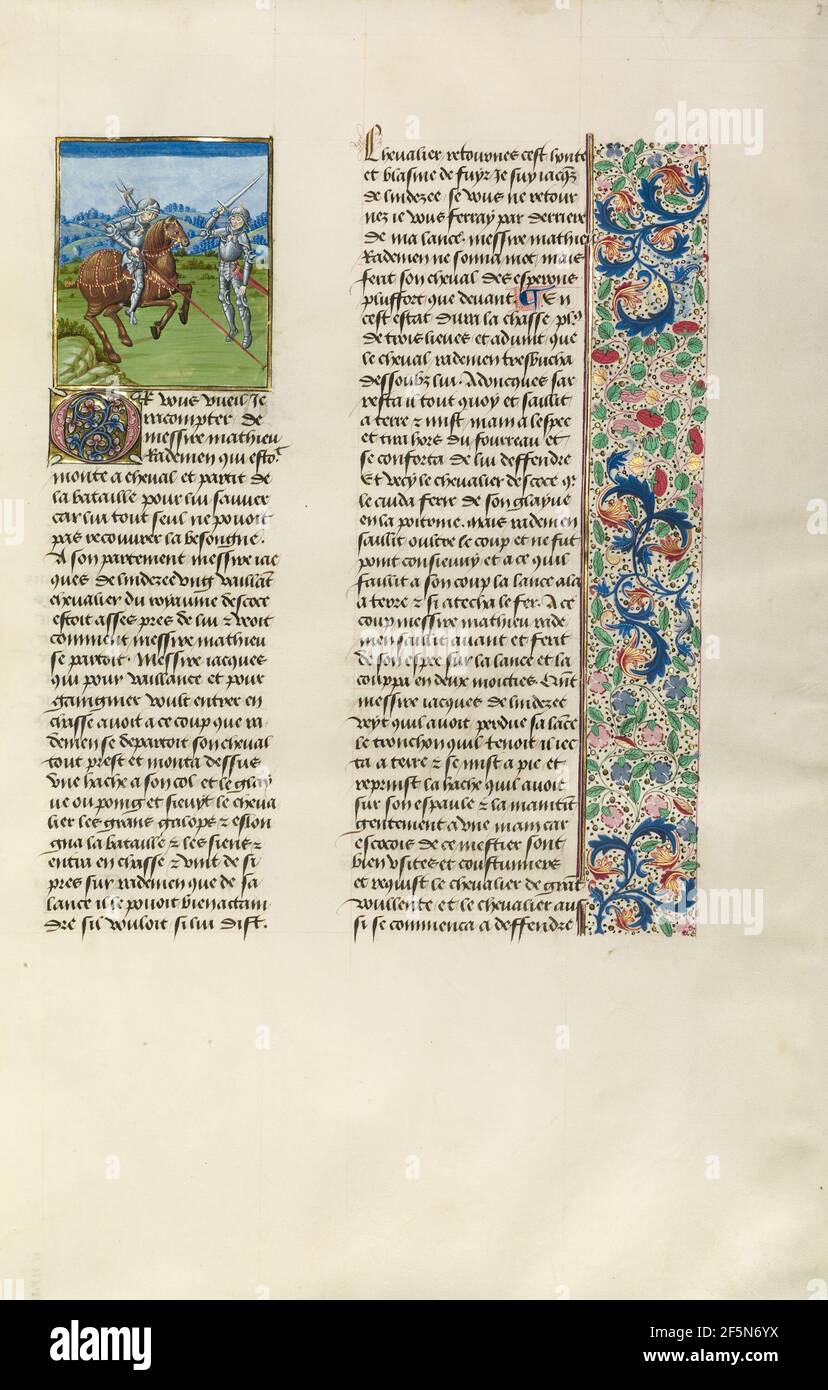 OR vous vueil Je
racompter de
messire mathieu
Rademen qui estoit
monte a cheval et partit de
la bataille pour lui sauver
car lui tout seul ne pouoit
pas recouvrer la besongne.
A son partement messire iac
ques de lindezee ung vaillant
chevalier du royaume descoce
estoit asses pres de lui et veoit
comment messire mathieu
se partoit. Messire iacques
qui pour vaillance et pour
gaingnier voult entrer en
chasse avoit a ce coup que ra
demen se departoit son cheval
tout prest et monta dessus
une hache a son col et le glay
ve ou poing et sievyt le cheva
lier les grans galops et eslon
gna la bataille et les siens et
entra en chasse et vint de si
pres sur rademen que de sa
lance il le pouoit bien actain
dre sil vouloit si lui dist.
Chevalier retournes cest honte
et blasme de fuyr Je suy iacqz
de lindezee se vous ne retour
nez ie vous ferray par derriere
de ma lance. messire mathieu
Rademen ne sonna mot mais
ferit son cheval des esperons
plusfort que devant. ¶ En
cest estat dura la chasse pl9
de trois lieues et advint que
le cheval rademen tresbucha
dessoubz lui. Adoncques sar
resta il tout quoy et saulit
a terre et mist main a lespee
et tira hors du fourreau et
se conforta de lui deffendre
Et vecy le chevalier descoce qr
le cuida ferir de son glayve
en la poitrine. mais rademen
saulit oultre le coup et ne fut
point consieuuy et a ce quil
faulit a son coup la lance ala
a terre et si atecha le fer. A ce
coup messire mathieu rade
men saulit avant et ferit
de son espee sur la lance et la
couppa en deux moitties. Quant
messire iacques de lindezee
veyt quil avoit perdue sa lance
le tronchon quil tenoit il iec
ta a terre et se mist a pie et
reprinst la hache quil avoit
sur son espaule et la maintint
gentement a une main car
escocois de ce mestier sont
bien usites et coustumiers
et requist le chevalier de grant
voullente et le chevalier aus
si se commenca a deffendre
alamy
alamy
Image ID: 2F5N6YX
www.alamy.com